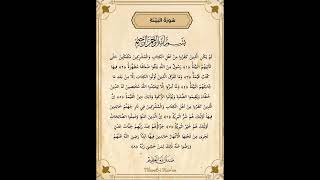 سُورَةُ الْبَيِّنَةِ
بِسْمِ اللَّهِ الرَّحْمَنِ الرَّحِيمِ
لَمْ يَكُنِ الَّذِينَ كَفَرُوا مِنْ أَهْلِ الْكِتَابِ وَالْمُشْرِكِينَ مُنْفَكِّينَ حَتَّى
تَأْتِيَهُمُ الْبَيِّنَةُ ﴿١﴾ رَسُولٌ مِنَ اللَّهِ يَتْلُو صُحُفًا مُطَهَّرَةً ﴿٢﴾ فِيهَا
كُتُبٌ قَيِّمَةٌ ﴿٣﴾ وَمَا تَفَرَّقَ الَّذِينَ أُوتُوا الْكِتَابَ إِلَّا مِنْ بَعْدِ مَا
جَاءَتْهُمُ الْبَيِّنَةُ ﴿٤﴾ وَمَا أُمِرُوا إِلَّا لِيَعْبُدُوا اللَّهَ مُخْلِصِينَ لَهُ الدِّينَ
حُنَفَاءَ وَيُقِيمُوا الصَّلَاةَ وَيُؤْتُوا الزَّكَاةَ وَذَلِكَ دِينُ الْقَيِّمَةِ ﴿٥﴾ إِنَّ
الَّذِينَ كَفَرُوا مِنْ أَهْلِ الْكِتَابِ وَالْمُشْرِكِينَ فِي نَارِ جَهَنَّمَ خَالِدِينَ
فِيهَا أُولَئِكَ هُمْ شَرُّ الْبَرِيَّةِ ﴿٦﴾ إِنَّ الَّذِينَ آمَنُوا وَعَمِلُوا الصَّالِحَاتِ
أُولَئِكَ هُمْ خَيْرُ الْبَرِيَّةِ ﴿٧﴾ جَزَاؤُهُمْ عِنْدَ رَبِّهِمْ جَنَّاتُ عَدْنٍ
تَجْرِي مِنْ تَحْتِهَا الْأَنْهَارُ خَالِدِينَ فِيهَا أَبَدًا رَضِيَ اللَّهُ عَنْهُمْ
وَرَضُوا عَنْهُ ذَلِكَ لِمَنْ خَشِيَ رَبَّهُ ﴿٨﴾
صدق الله العظيم